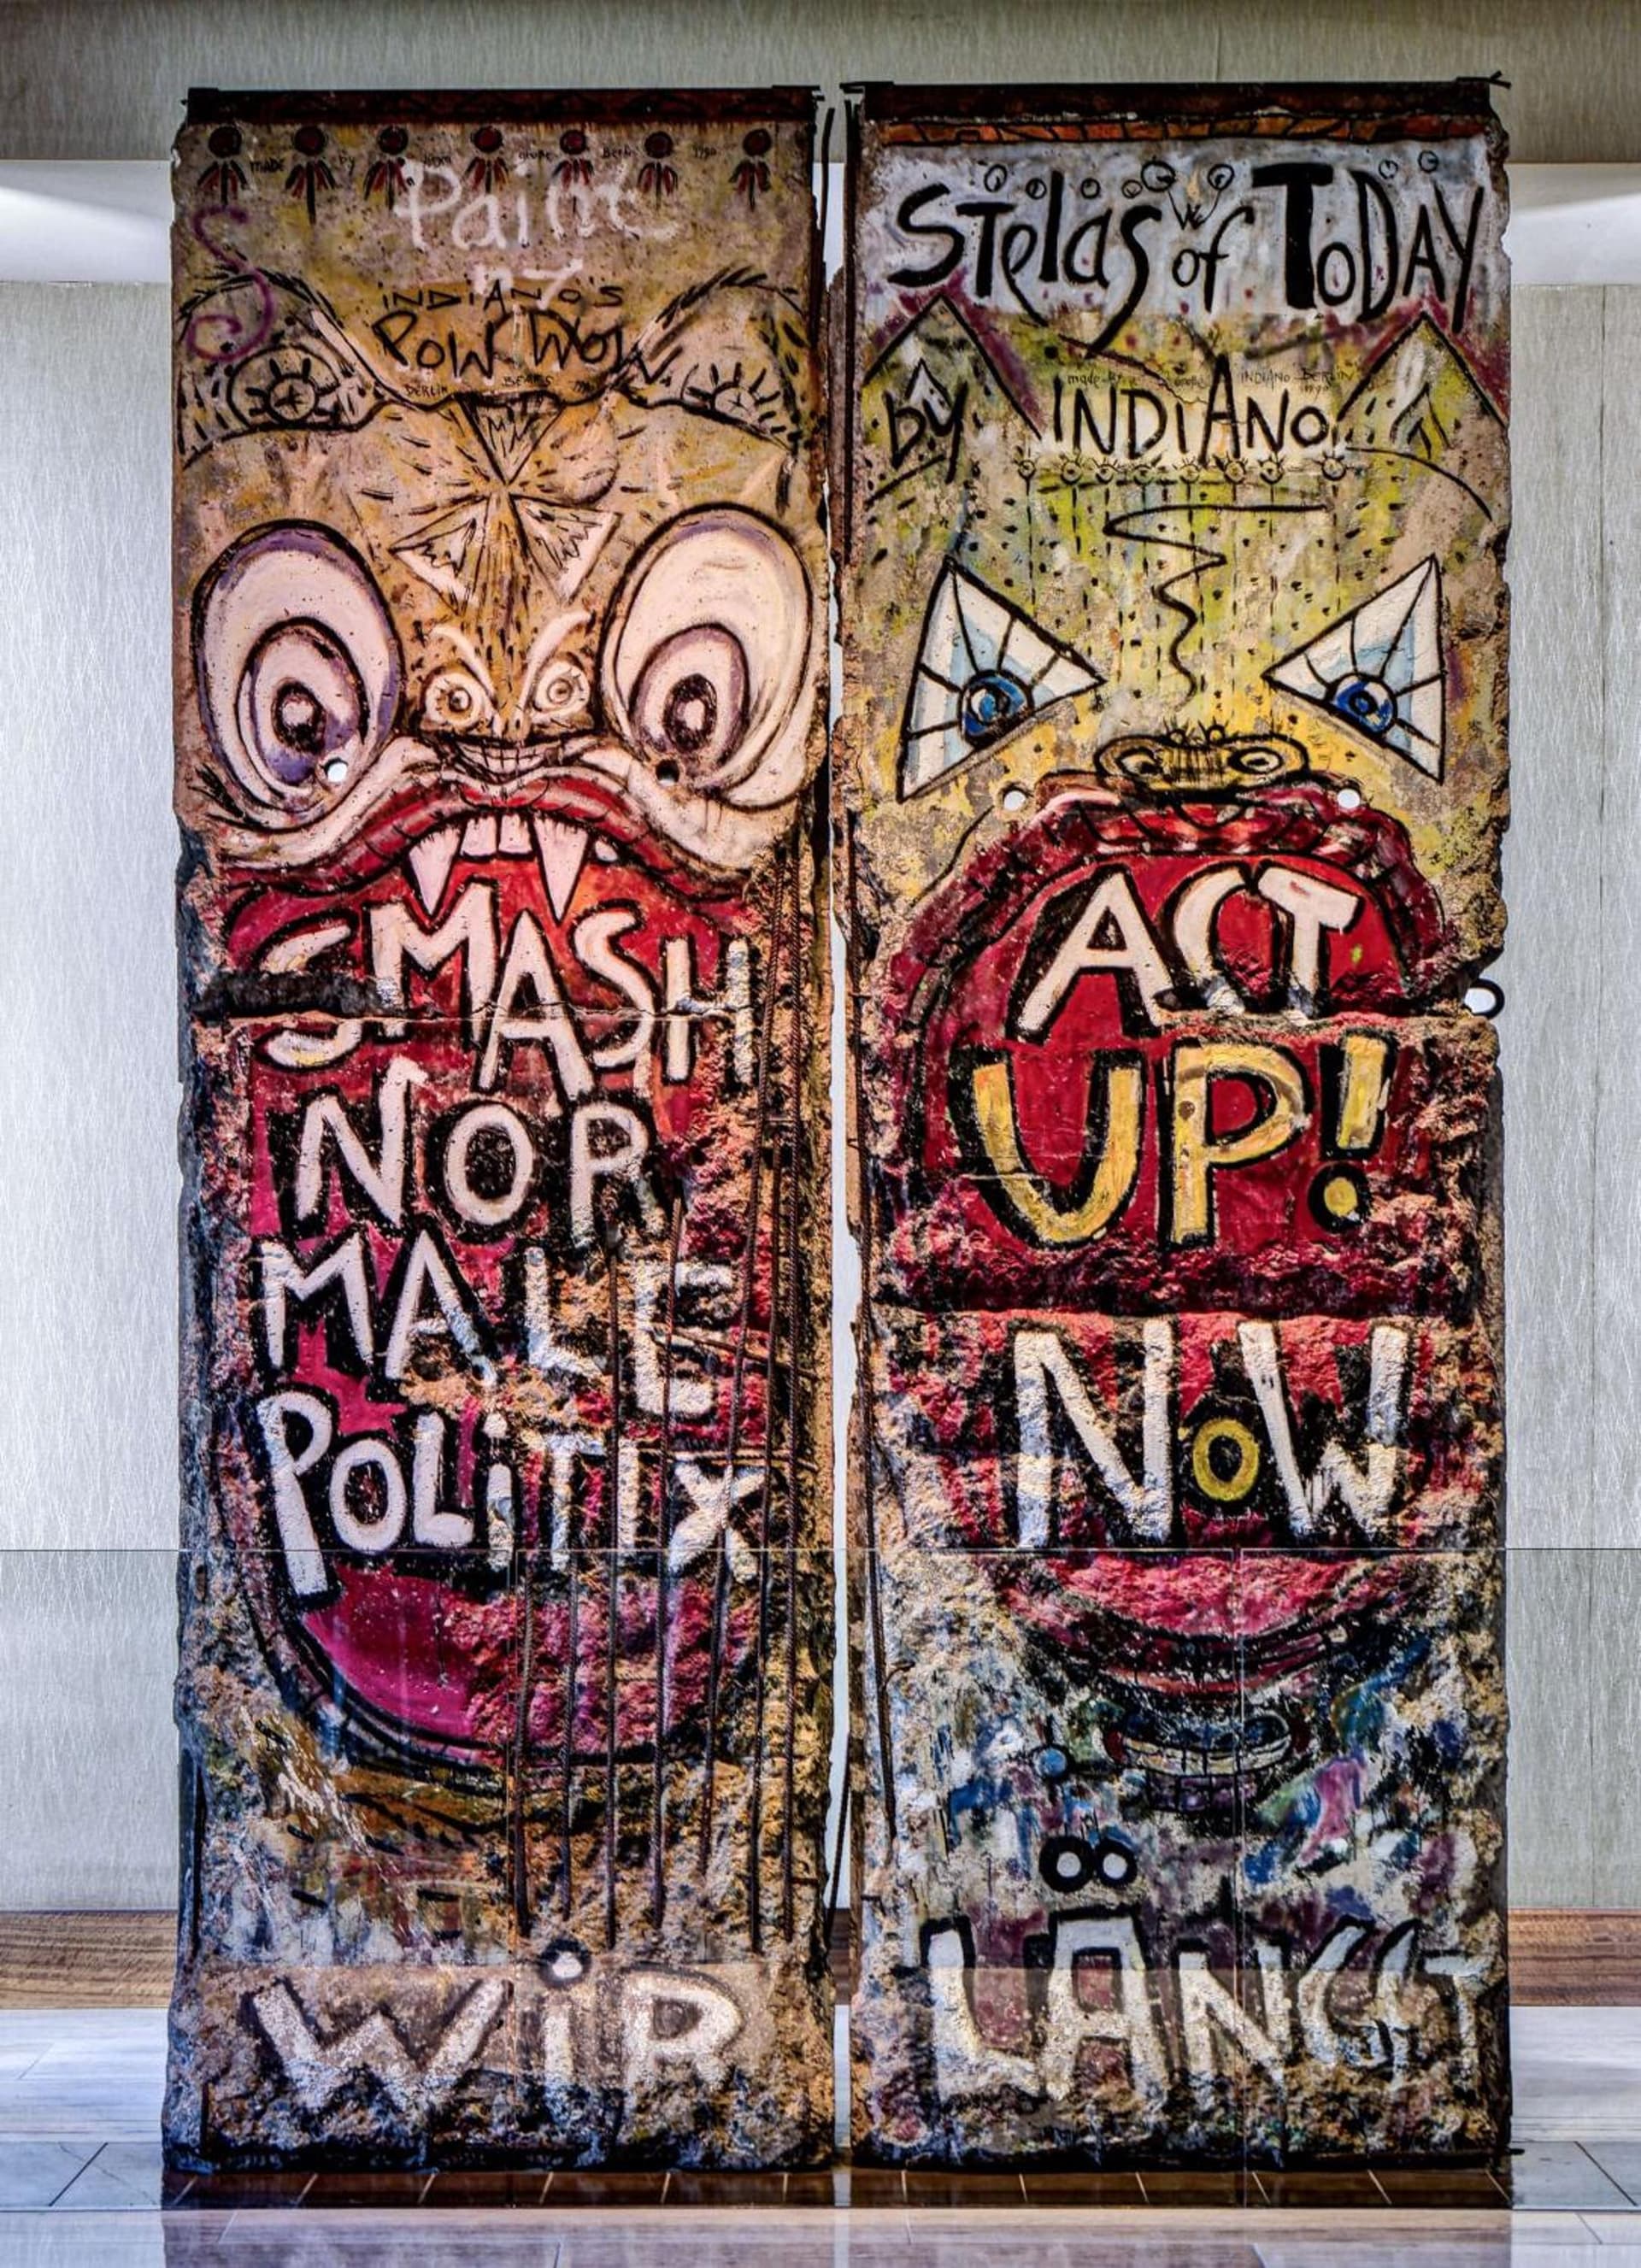 made by Berlin 1990
Paint
INDIANO'S
POW WOW
BERLIN BEARS
SMASH
NOR
MALE
POLiTIX
WiR
STelas of ToDAY
made by INDIANO BERLIN 1990
by INDIANO
ACT
UP!
NoW
LÄNGST